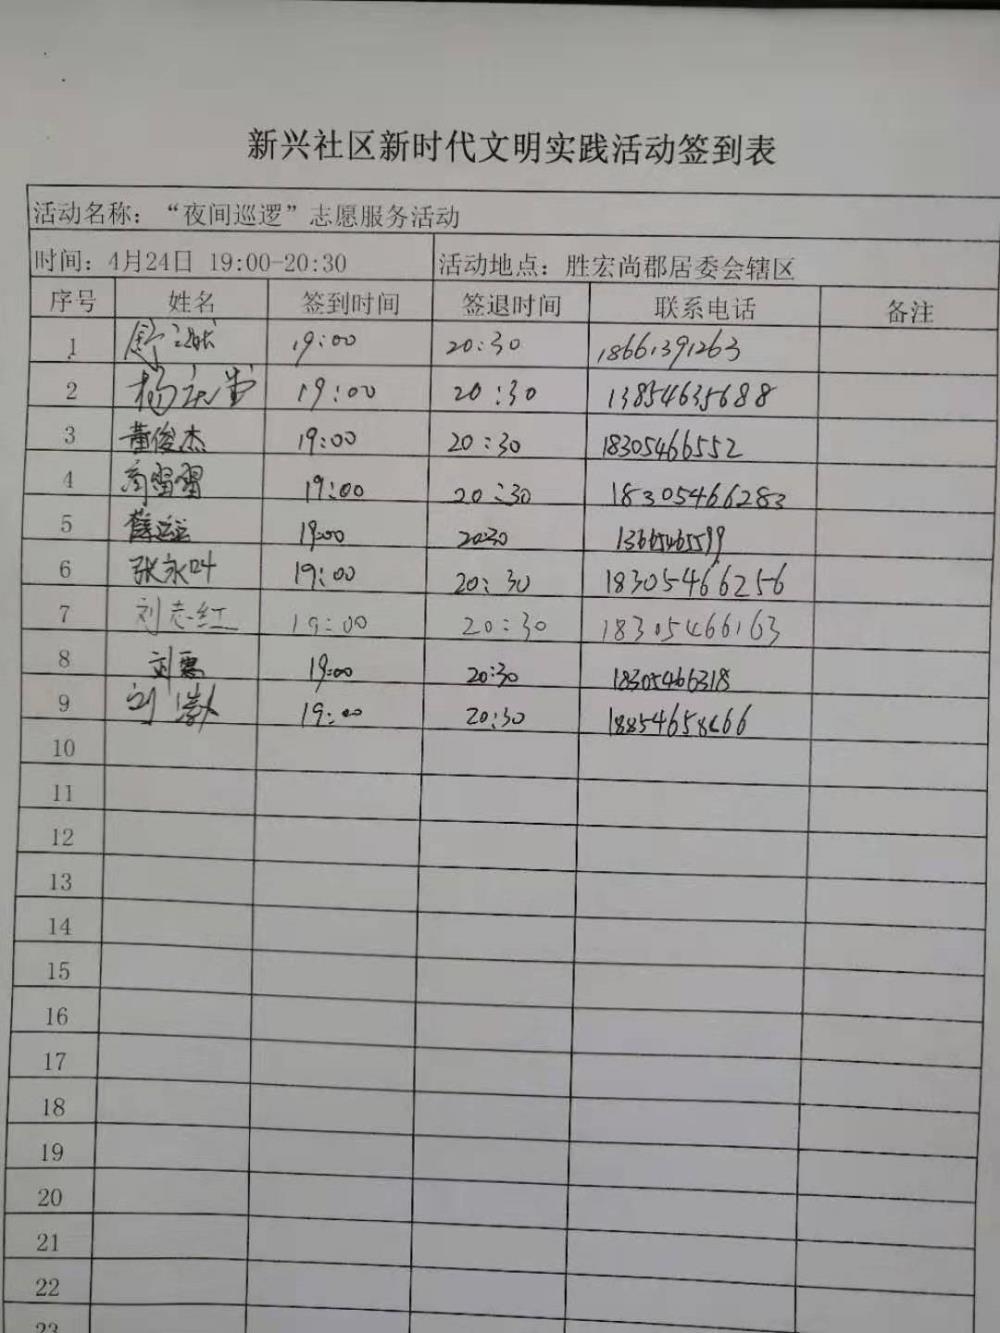 新兴社区新时代文明实践活动签到表
活动名称：“夜间巡逻”志愿服务活动
时间：4月24日 19:00-20:30 活动地点：胜宏尚郡居委会辖区
序号 姓名 签到时间 签退时间 联系电话 备注
1 19:00 20:30 18661391263
2 杨 19:00 20:30 13854635688
3 董俊杰 19:00 20:30 18305466552
4 19:00 20:30 18305466283
5 薛运运 19:00 20:30
6 张永叶 19:00 20:30 18305466256
7 刘志红 19:00 20:30 18305466163
8 刘惠 19:00 20:30 18305466318
9 刘 19:00 20:30 18854658666
10
11
12
13
14
15
16
17
18
19
20
21
22
23